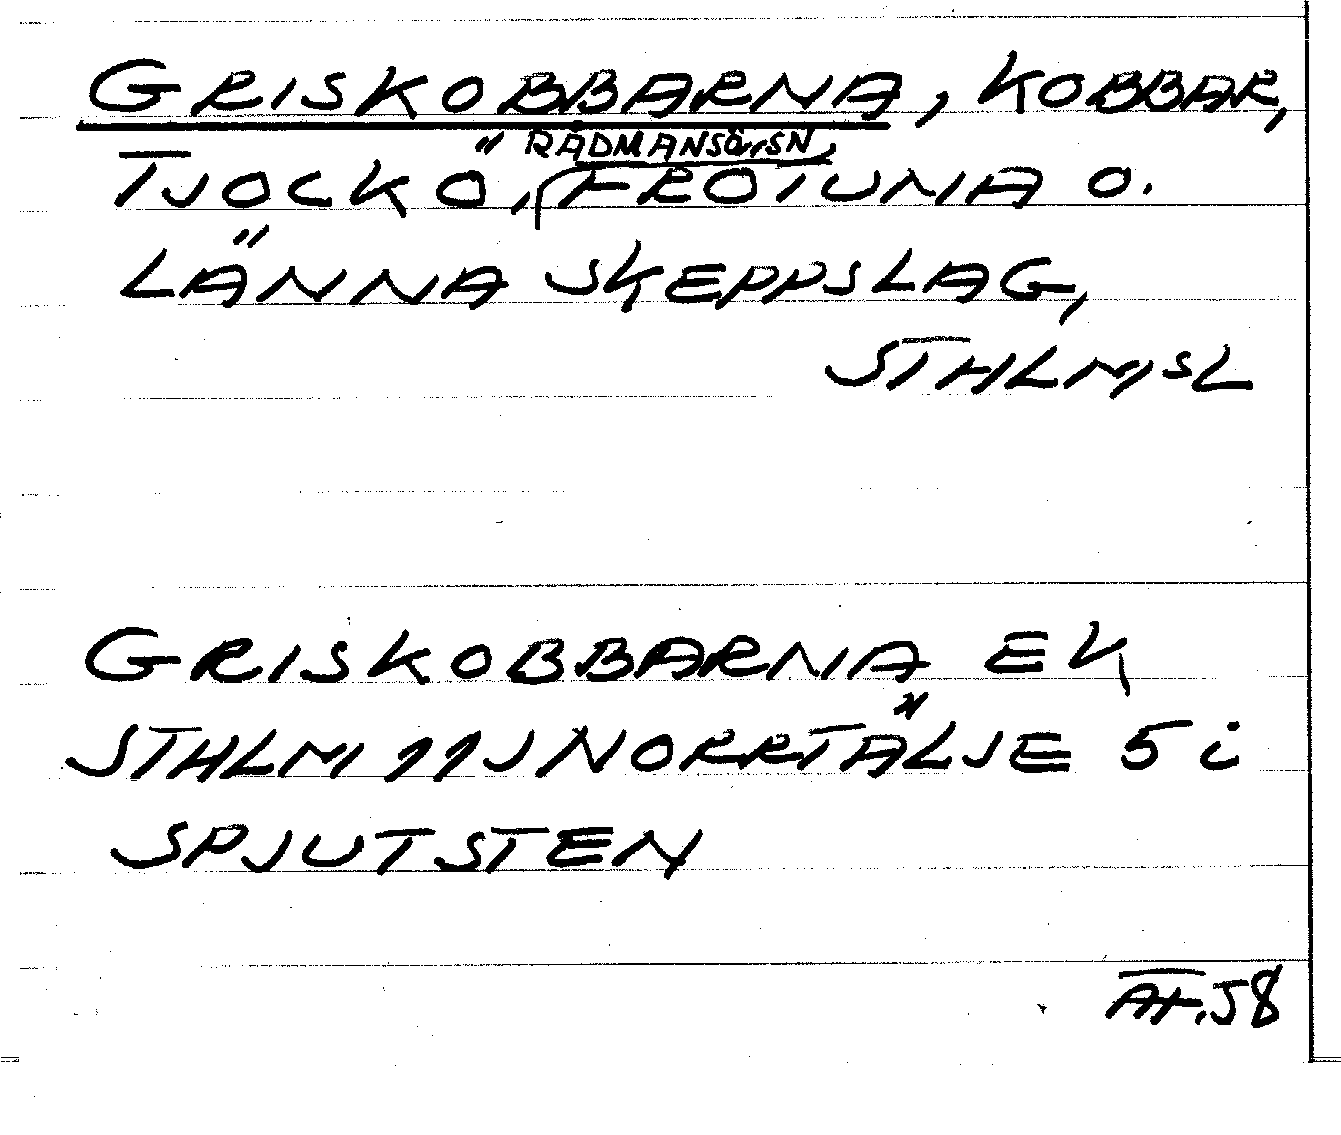 GRISKOBBARNA, KOBBAR,
RÅDMANSÖ SN,
TJOCKÖ, FRÖTUNA O.
LÄNNA SKEPPSLAG,
STHLMSL
GRISKOBBARNA EK
STHLM 11J NORRTÄLJE 5 i
SPJUTSTEN